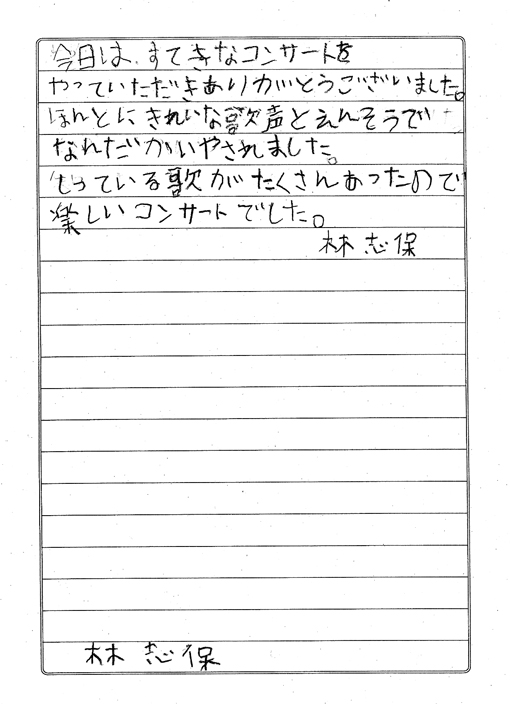 今日は、すてきなコンサートを
やっていただきありがとうございました。
ほんとにきれいな歌声とえんそうで
なんだかいやされました。
しっている歌がたくさんあったので
楽しいコンサートでした。
林 志保
林 志保